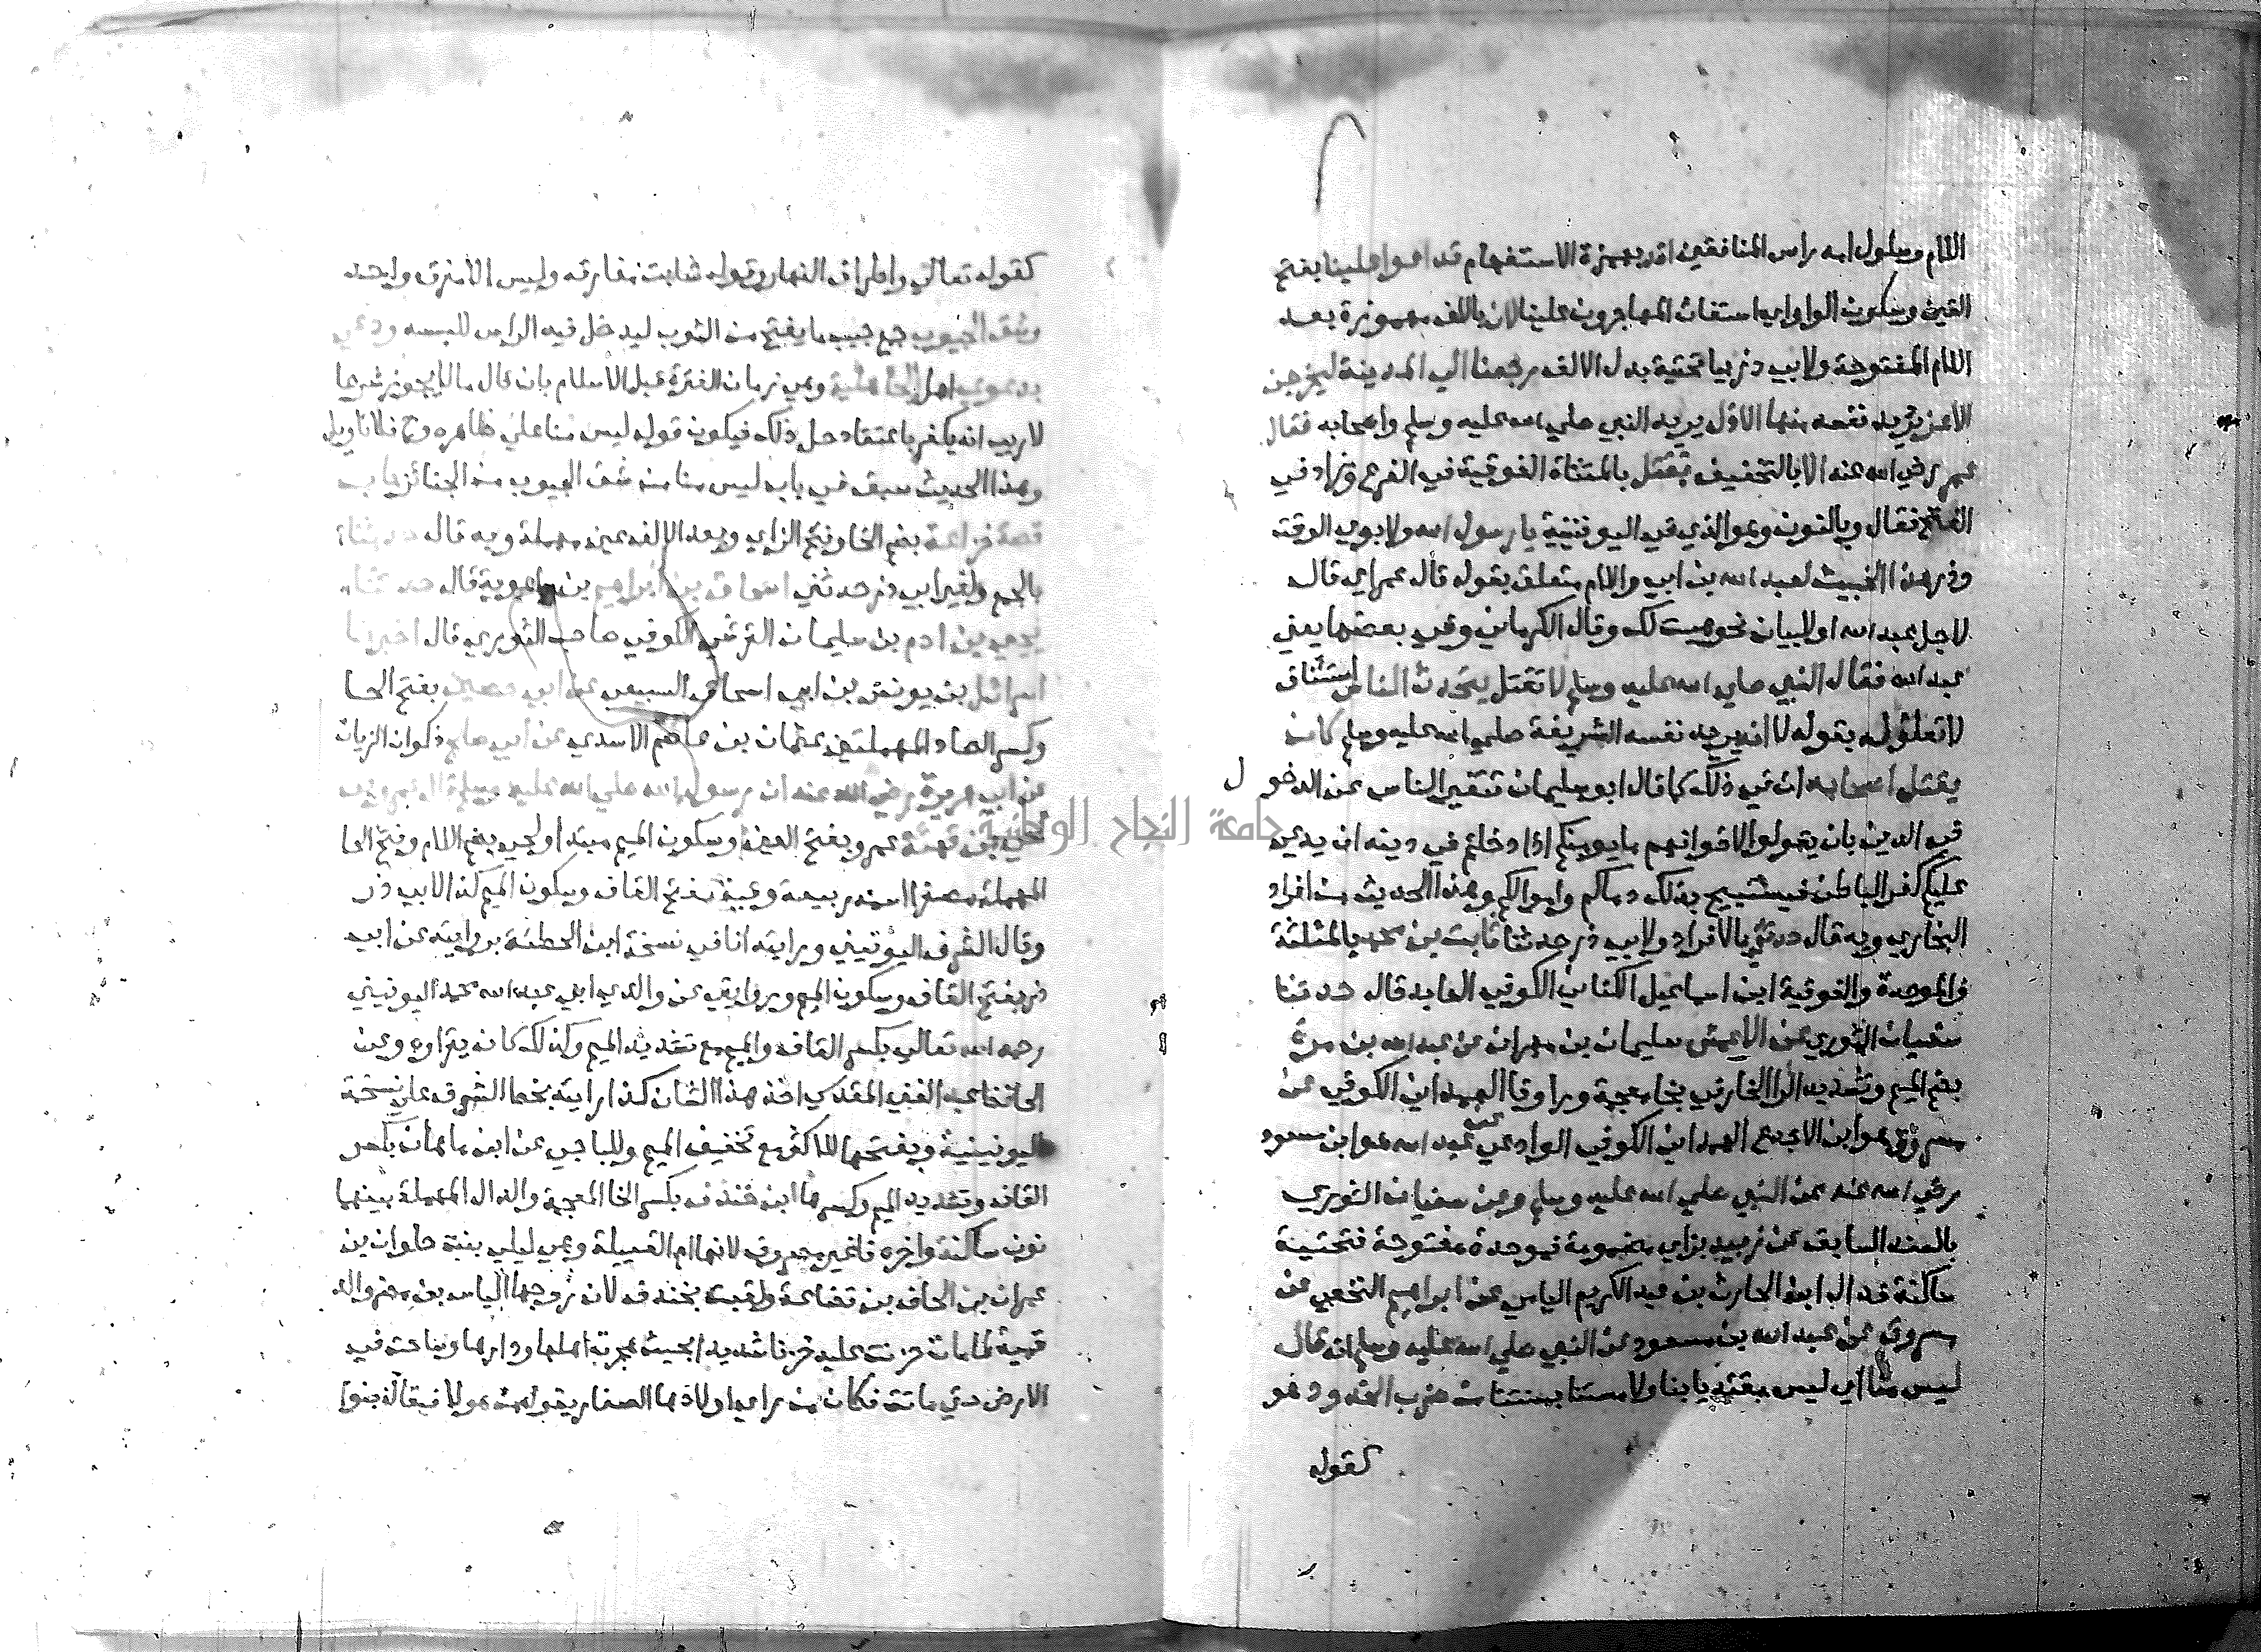 اللام وسلول امه راس المنافقين اقد بهمزة الاستفهام قد اعوا علينا بفتح
العين وسكون الواو اي استغاث المهاجرون علينا لان باللف مهموزة بعد
اللام المفتوحة ولابي ذر بيا تحتية بدل الالف رجعنا الي المدينة ليخرجن
الاعز يريد نفسه منها الاذل يريد النبي صلي الله عليه وسلم واصحابه فقال
عمر رضي الله عنه الا بالتخفيف تقتل بالمثناة الفوقية في الفرع وزاد في
الفتح فقال وبالنون وهو الذي في اليونينية يا رسول الله ولابوي الوقت
وذر هذا الخبيث لعبد الله بن ابي واللام متعلق بقوله قال عمر اي قال
لاجل عبد الله او للبيان نحو هيت لك وقال الكرماني وفي بعضها يعني
عبد الله فقال النبي صلي الله عليه وسلم لا تقتل يتحدث الناس استئناف
لا تعلق له بقوله لا انه يريد نفسه الشريفة صلي الله عليه وسلم كان
يقتل اصحابه اي في ذلك كما قال ابو سليمان تنفير الناس عن الدخول
في الدين بان يقولوا لاخوانهم ما يومنكم اذا دخلتم في دينه ان يدعي
عليكم كفر الباطن فيستبيح بذلك دماكم واموالكم وهذا الحديث من افراد
البخاري وبه قال حدثني بالافراد ولابي ذر حدثنا ثابت بن محمد بالمثلثة
والموحدة والفوقية ابن اسماعيل الكناني الكوفي العابد قال حدثنا
سفيان الثوري عن الاعمش سليمان بن مهران عن عبد الله بن مرة
بضم الميم وتشديد الرا الخارفي بخا معجمة ورا وفا الهمداني الكوفي عن
مسروق هو ابن الاجدع الهمداني الكوفي الوادعي عن عبد الله هو ابن مسعود
رضي الله عنه عن النبي صلي الله عليه وسلم وعن سفيان الثوري
بالسند السابق عن زبيد بزاي مضمومة فموحدة مفتوحة فتحتية
ساكنة فدال ابن الحارث بن عبد الكريم اليامي عن ابراهيم النخعي عن
مسروق عن عبد الله بن مسعود عن النبي صلي الله عليه وسلم انه قال
ليس منا اي ليس مقتديا بنا ولا مستنا بسنتنا من ضرب الخدود وهو
كقوله
كقوله تعالي واطراف النهار وقوله شابت مفارقه وليس الا مفرق واحد
وشق الجيوب جمع جيب ما يفتح من الثوب ليدخل فيه الراس للبسه ودعي
بدعوي اهل الجاهلية وهي زمان الفترة قبل الاسلام بان قال ما لا يجوز شرعا
لا ريب انه يكفر باعتقاد حل ذلك فيكون قوله ليس منا علي ظاهره وح فلا تاويل
وهذا الحديث سبق في باب ليس منا من شق الجيوب من الجنائز باب
قصة خزاعة بضم الخا وفتح الزاي وبعد الالف عين مهملة وبه قال حدثنا
بالجمع ولغير ابي ذر حدثني اسحاق بن ابراهيم بن راهوية قال حدثنا
يحيي بن ادم بن سليمان القرشي الكوفي صاحب الثوري قال اخبرنا
اسرائيل بن يونس بن ابي اسحاق السبيعي عن ابي حصين بفتح الحا
وكسر الصاد المهملتين عثمان بن عاصم الاسدي عن ابي صالح ذكوان الزيات
عن ابي هريرة رضي الله عنه ان رسول الله صلي الله عليه وسلم قال عمرو بن
لحي بن قمعة عمرو بفتح العين وسكون الميم مبتدا ولحي بضم اللام وفتح الحا
المهملة مصغرا اسمه ربيعة وقمعة بفتح القاف وسكون الميم كذا لابي ذر
وقال الشرف اليونيني ورايته انا في نسخة ابن الحطئة بروايته عن ابي
ذر بفتح القاف وسكون الميم وبروايتي عن والدي ابي عبد الله محمد اليونيني
رحمه الله تعالي بكسر القاف والميم مع تشديد الميم وكذلك كان يقراوه وعن
الحافظ عبد الغني المقدسي اخذ هذا الشان كذا رايته بخط الشرف علي نسخة
اليونينية وبفتحها للاكثر مع تخفيف الميم وللباجي عن ابن ماهان بكسر
القاف وتشديد الميم وكسرها ابن خندف بكسر الخا المعجمة والدال المهملة بينهما
نون ساكنة واخره فا غير مصروف لانها ام القبيلة وهي ليلي بنت حلوان بن
عمران بن الحاف بن قضاعة ولقبت بخندف لان زوجها الياس بن مضر والد
قمعة لما مات حزنت عليه حزنا شديدا بحيث هجرت اهلها ودارها وساحت في
الارض حتي ماتت فكان من راي اولادها الصغار يقول من هولا فيقال بنوا